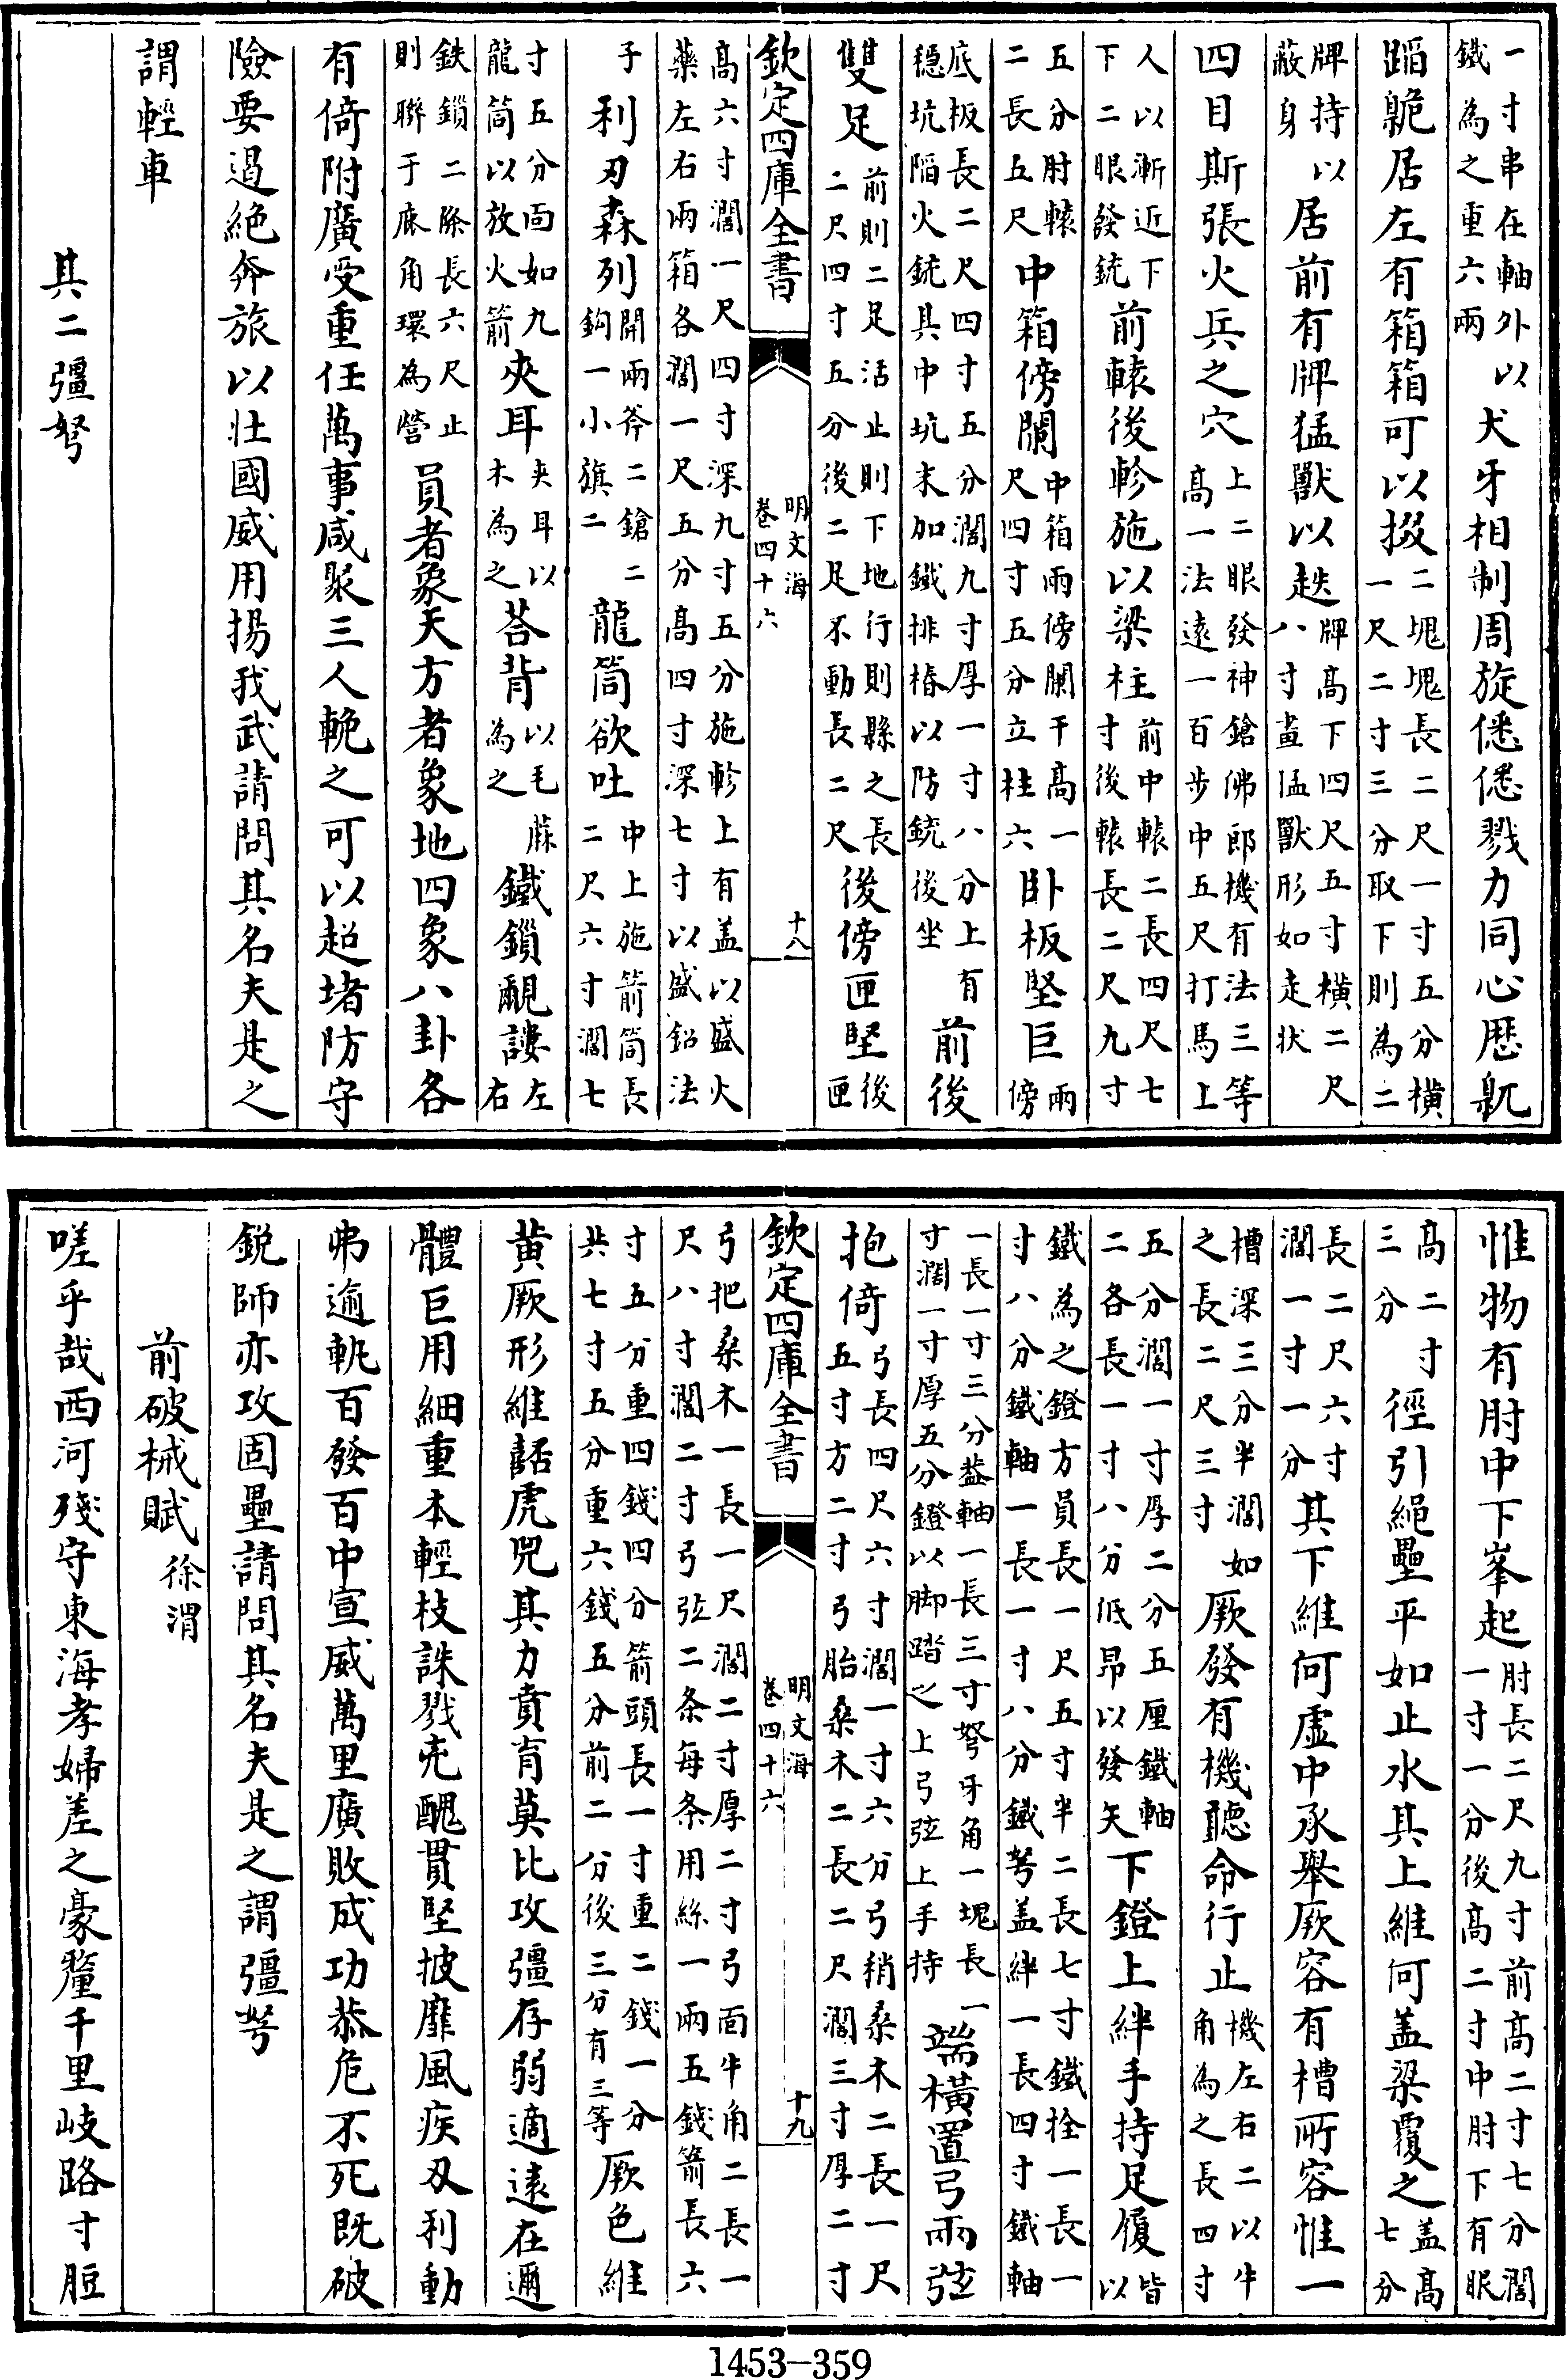 一寸串在軸外以鐵為之重六兩犬牙相制周旋僁僁戮力同心歴
蹈居左有箱箱可以掇二塊塊長二尺一寸五分橫一尺二寸三分取下則為二
牌持以蔽身居前有牌猛獸以趃牌高下四尺五寸橫二尺八寸畫猛獸形如走狀
四目斯張火兵之穴上二眼發神鎗佛郎機有法三等高一法遠一百步中五尺打馬上
人以漸近下下二眼發銃前轅後軫施以梁柱前中轅二長四尺七寸後轅長二尺九寸
五分肘轅二長五尺中箱傍闌中箱兩傍闌干高一尺四寸五分立柱六卧板堅巨兩傍
底板長二尺四寸五分濶九寸厚一寸八分上有穩坑陷火銃具中坑末加鐵排樁以防銃後坐前後
雙足前則二足活止則下地行則縣之長二尺四寸五分後二足不動長二尺後傍匣堅後匣
欽定四庫全書 明文海卷四十六 十八
高六寸濶一尺四寸深九寸五分施軫上有盖以盛火藥左右兩箱各濶一尺五分高四寸深七寸以盛鉛法
子利刃森列開兩斧二鎗二鈎一小旗二龍筒欲吐中上施箭筒長二尺六寸濶七
寸五分面如九龍筒以放火箭夾耳夾耳以木為之荅背以毛蔴為之鐵鎖覼謱左右
鉄鎖二除長六尺止則聯于庥角環為營員者象天方者象地四象八卦各
有倚附廣受重任萬事咸聚三人輓之可以超堵防守
險要遏絶奔旅以壯國威用揚我武請問其名夫是之
謂輕車
其二彊弩
惟物有肘中下峯起肘長二尺九寸前高二寸七分濶一寸一分後高二寸中肘下有眼
高二寸三分徑引䋲壘平如止水其上維何盖梁覆之盖高七分
長二尺六寸濶一寸一分其下維何虛中承舉厥容有槽所容惟一
槽深三分半濶如之長二尺三寸厥發有機聽命行止機左右二以牛角為之長四寸
五分濶一寸厚二分五厘鐵軸二各長一寸八分低昂以發矢下鐙上絆手持足履皆以
鐵為之鐙方員長一尺五寸半二長七寸鐵拴一長一寸八分鐵軸一長一寸八分鐵弩盖絆一長四寸鐵軸
一長一寸三分葢軸一長三寸弩牙角一塊長一寸濶一寸厚五分鐙以脚踏之上弓弦上手持端橫置弓兩弦
抱倚弓長四尺六寸濶一寸六分弓稍桑木二長一尺五寸方二寸弓胎桑木二長二尺濶三寸厚二寸
欽定四庫全書 明文海卷四十六 十九
弓把桑木一長一尺濶二寸厚二寸弓面牛角二長一尺八寸濶二寸弓弦二条每条用絲一兩五錢箭長六
寸五分重四錢四分箭頭長一寸重二錢一分共七寸五分重六錢五分前二分後三分有三等厥色維
黃厥形維䛡虎兕其力賁育莫比攻彊存弱適遠在邇
體巨用細重本輕枝誅戮兇醜貫堅披靡風疾刄利動
弗逾軌百發百中宣威萬里廣敗成功恭危不死既破
銳師亦攻固壘請問其名夫是之謂彊弩
前破械賦 徐渭
嗟乎哉西河殘守東海孝婦差之豪釐千里岐路寸脰
1453—359